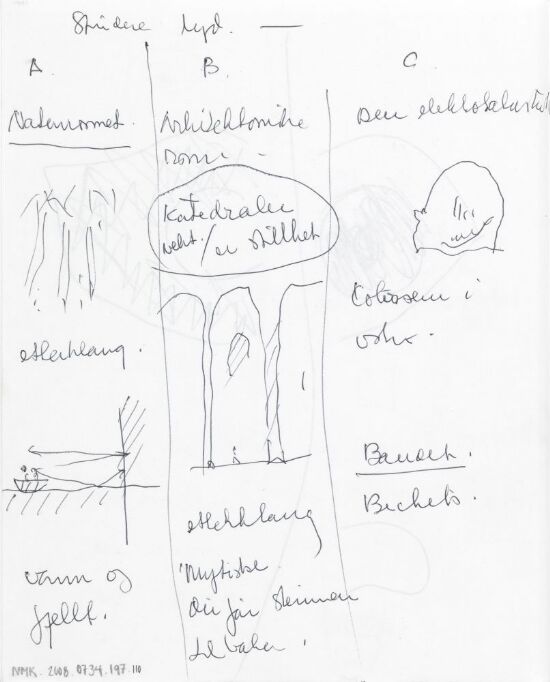 Studere lyd. —
A.
Naturrommet.
etterklang.
vann og
fjell.
B.
Arkitektoniske
rom.
Katedralen
/ en stillhet
etterklang
Mystiske.
Du får stemmen
tilbake.
C
Den elektroakustisk
i
Becketts.
NMK. 2008. 0734. 197. 110